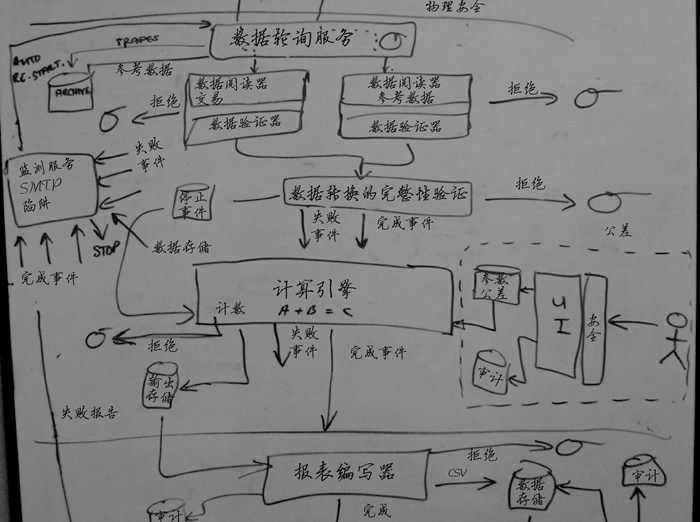 物理安全
数据轮询服务
AUTO
RE.START.
TRADES
参考数据
ARCHIVE
数据阅读器
交易
数据验证器
数据阅读器
参考数据
数据验证器
拒绝
拒绝
监测服务
SMTP
陷阱
失败
事件
停止
事件
数据转换的完整性验证
拒绝
公差
STOP
数据存储
完成事件
失败
事件
完成事件
计算引擎
A + B = C
计数
参数
公差
UI
安全
审计
拒绝
失败
事件
完成事件
输出
存储
失败报告
报表编写器
拒绝
CSV
数据
存储
审计
审计
完成